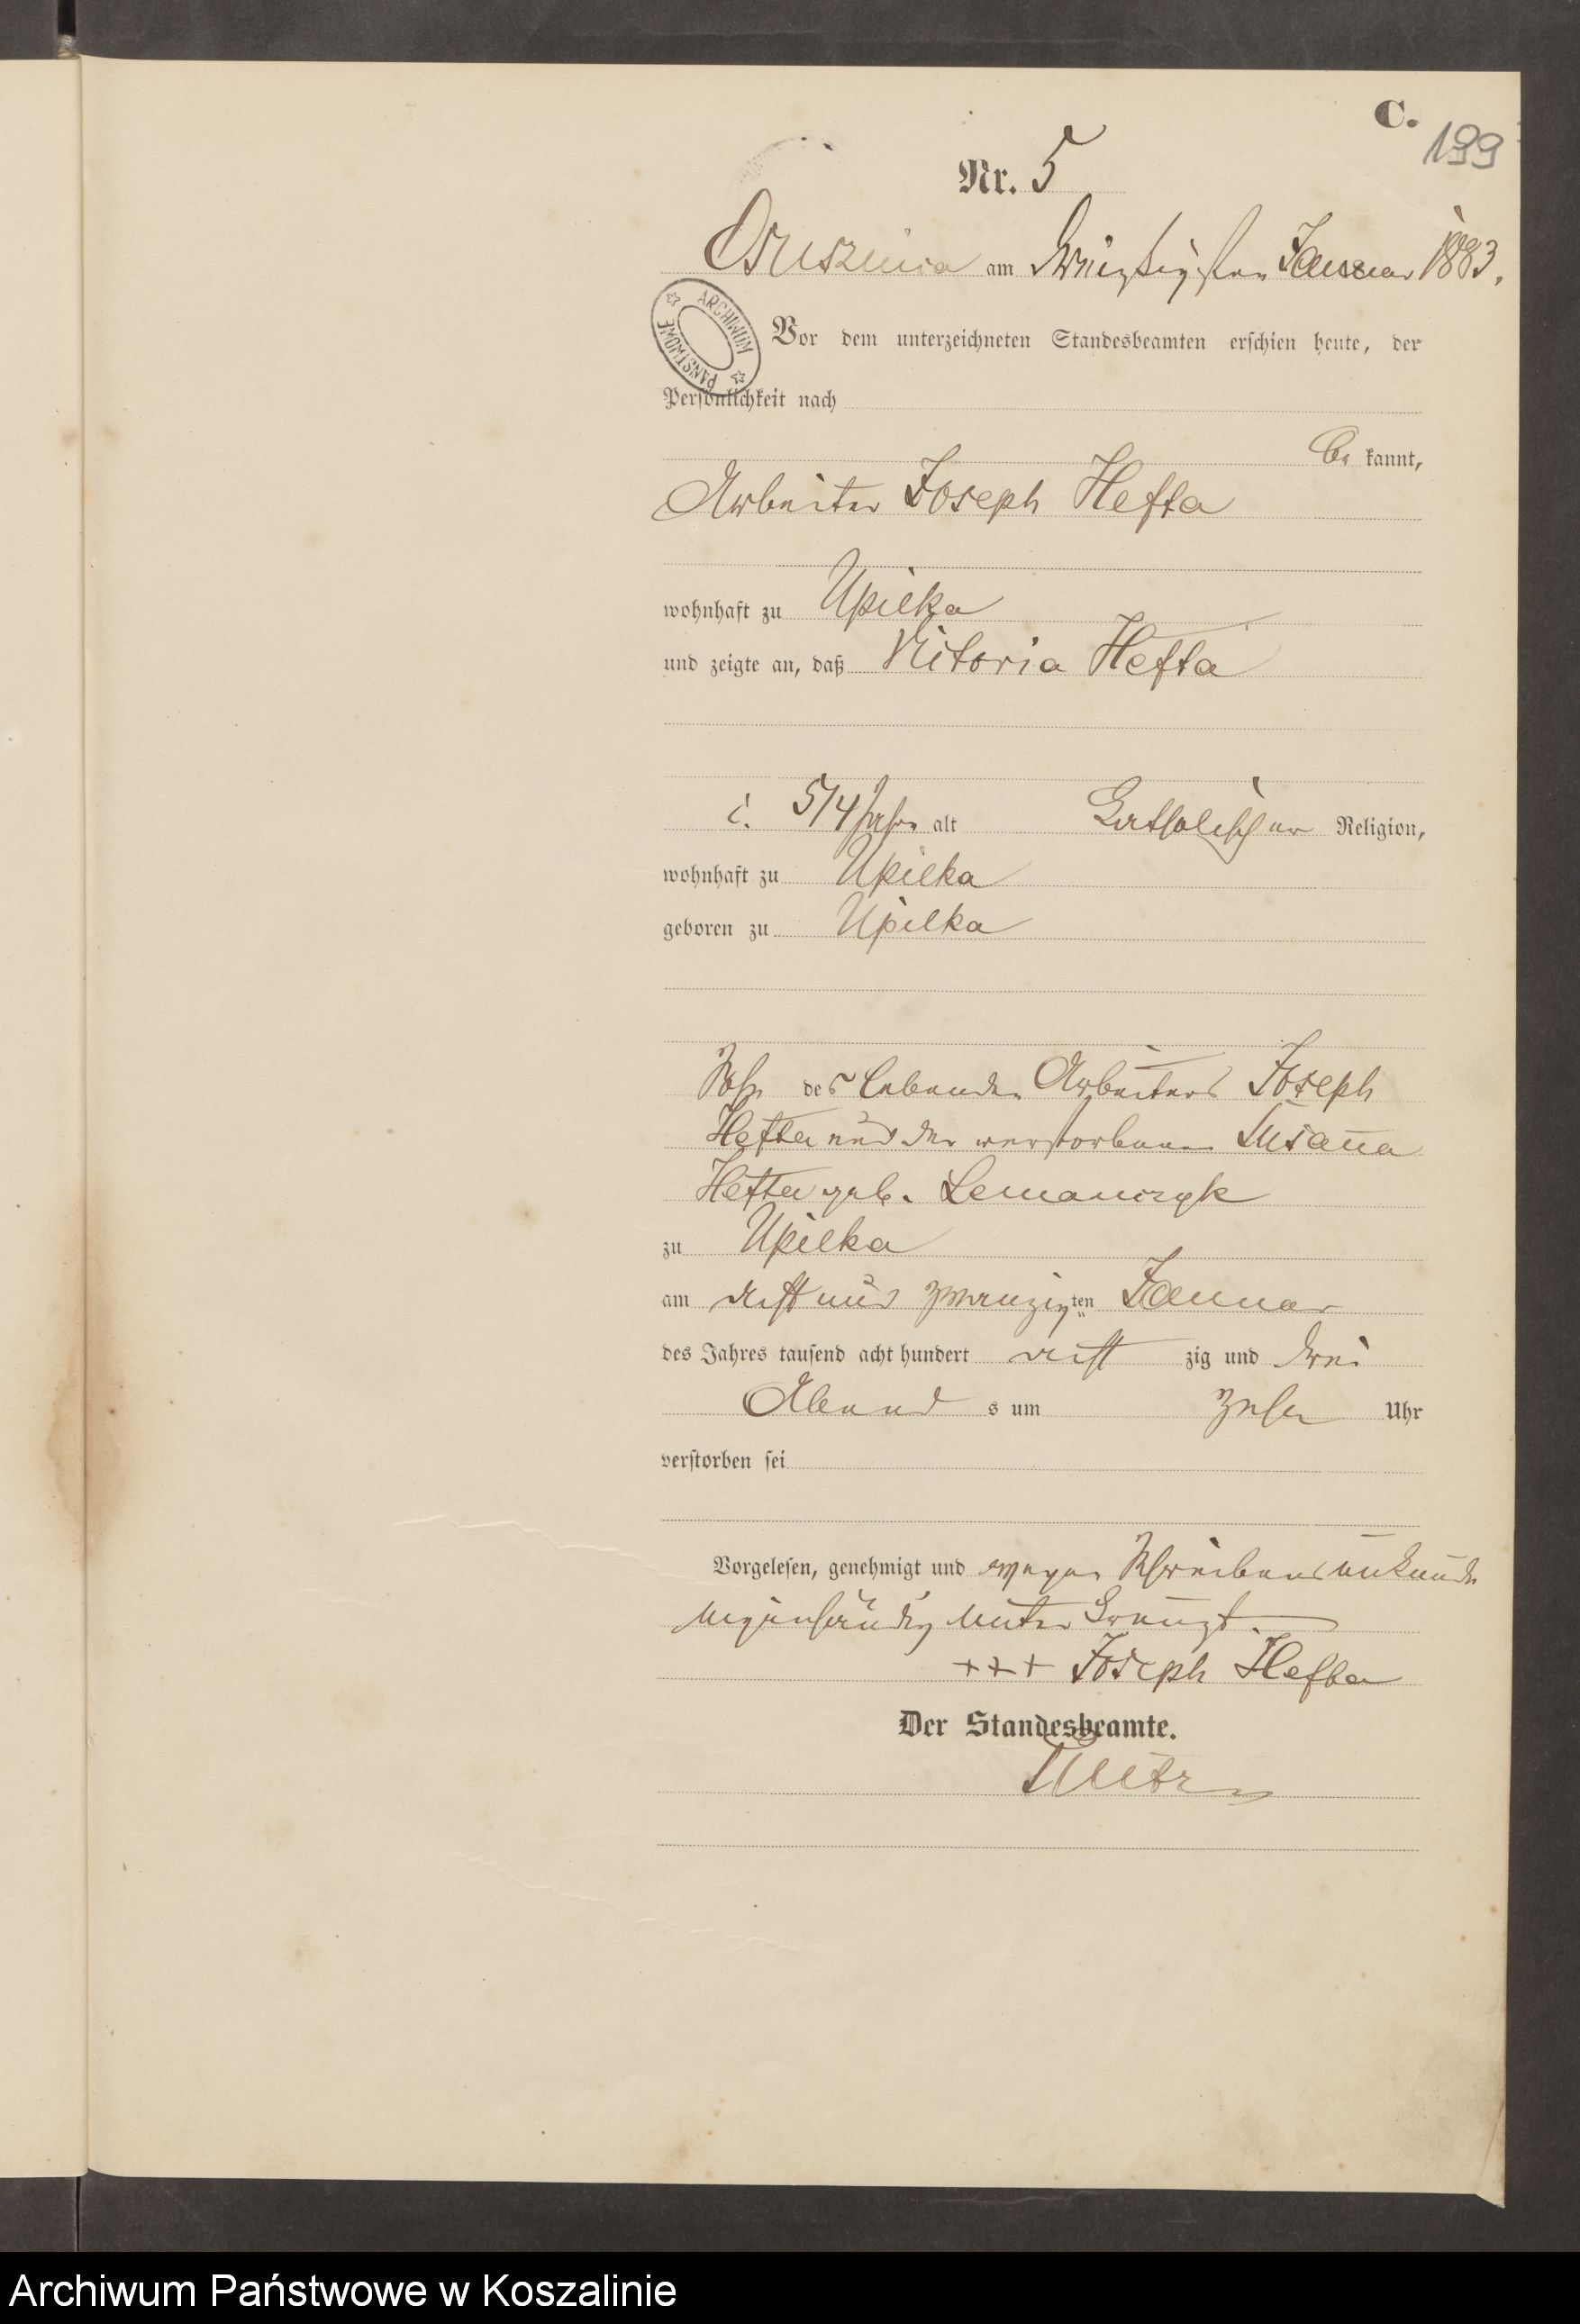 C.
199
Nr. 5
Osusznica am dreißigsten Januar 1883.
ARCHIWUM PAŃSTWOWE
Vor dem unterzeichneten Standesbeamten erschien heute, der
Persönlichkeit nach
be kannt,
Arbeiter Joseph Hefta
wohnhaft zu Upilka
und zeigte an, daß Vitoria Hefta
5/4 Jahre alt Katholischer Religion,
wohnhaft zu Upilka
geboren zu Upilka
Sohn des lebenden Arbeiters Joseph
Hefta und der verstorbenen Susanna
Hefta geb. Lemanczyk
zu Upilka
am acht und zwanzigten Januar
des Jahres tausend acht hundert acht zig und drei
Abend s um Zehn Uhr
verstorben sei
Vorgelesen, genehmigt und wegen Schreibensunkunde
eigenhändig unter Kreuzt.
+++ Joseph Hefta
Der Standesbeamte.